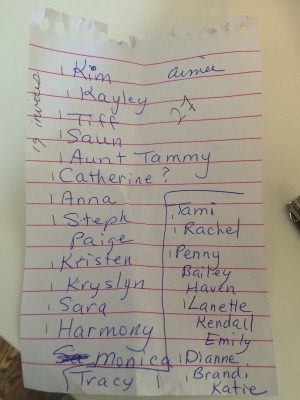 19 invited
Kim
Kayley
Tiff
Saun
Aunt Tammy
Catherine?
Anna
Steph
Paige
Kristen
Kryslyn
Sara
Harmony
Monica
Tracy
aimee
27
Tami
Rachel
Penny
Bailey
Haven
Lanette
Kendall
Emily
Dianne
Brandi
Katie